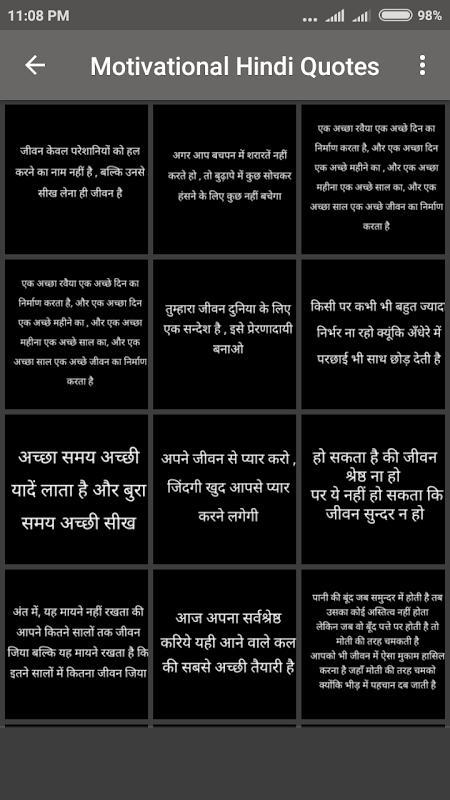 11:08 PM
98%
Motivational Hindi Quotes
जीवन केवल परेशानियों को हल
करने का नाम नहीं है , बल्कि उनसे
सीख लेना ही जीवन है
अगर आप बचपन में शरारतें नहीं
करते हो , तो बुढ़ापे में कुछ सोचकर
हंसने के लिए कुछ नहीं बचेगा
एक अच्छा रवैया एक अच्छे दिन का
निर्माण करता है, और एक अच्छा दिन
एक अच्छे महीने का , और एक अच्छा
महीना एक अच्छे साल का, और एक
अच्छा साल एक अच्छे जीवन का निर्माण
करता है
एक अच्छा रवैया एक अच्छे दिन का
निर्माण करता है, और एक अच्छा दिन
एक अच्छे महीने का , और एक अच्छा
महीना एक अच्छे साल का, और एक
अच्छा साल एक अच्छे जीवन का निर्माण
करता है
तुम्हारा जीवन दुनिया के लिए
एक सन्देश है , इसे प्रेरणादायी
बनाओ
किसी पर कभी भी बहुत ज्यादा
निर्भर ना रहो क्यूंकि अँधेरे में
परछाई भी साथ छोड़ देती है
अच्छा समय अच्छी
यादें लाता है और बुरा
समय अच्छी सीख
अपने जीवन से प्यार करो ,
जिंदगी खुद आपसे प्यार
करने लगेगी
हो सकता है की जीवन
श्रेष्ठ ना हो
पर ये नहीं हो सकता कि
जीवन सुन्दर न हो
अंत में, यह मायने नहीं रखता की
आपने कितने सालों तक जीवन
जिया बल्कि यह मायने रखता है कि
इतने सालों में कितना जीवन जिया
आज अपना सर्वश्रेष्ठ
करिये यही आने वाले कल
की सबसे अच्छी तैयारी है
पानी की बूंद जब समुन्दर में होती है तब
उसका कोई अस्तित्व नहीं होता
लेकिन जब वो बूँद पत्ते पर होती है तो
मोती की तरह चमकती है
आपको भी जीवन में ऐसा मुकाम हासिल
करना है जहाँ मोती की तरह चमको
क्योंकि भीड़ में पहचान दब जाती है